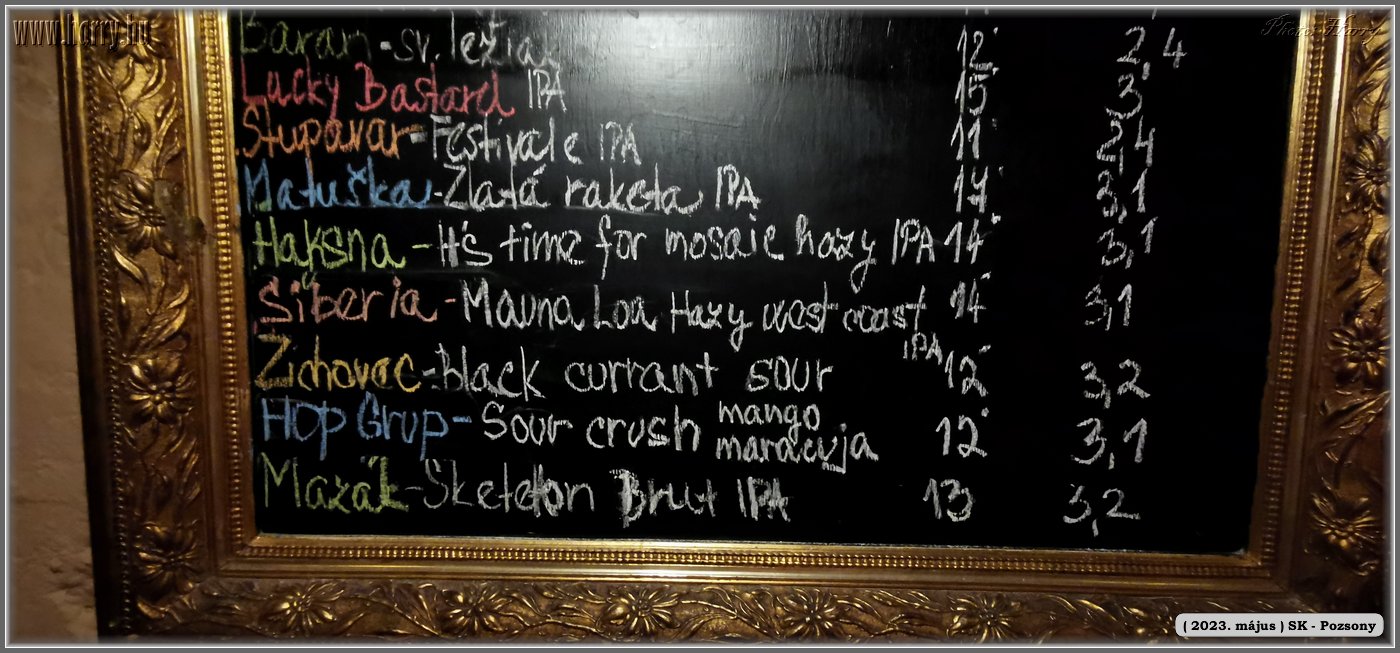 www.horry.hu
Photo: Horry
Baran - sv. ležiak 12° 2,4
Lucky Bastard IPA 15° 3
Stupavar - Festivale IPA 11° 2,4
Matuška - Zlatá raketa IPA 17° 3,1
Haksna - It's time for mosaic hazy IPA 14° 3,1
Siberia - Mauna Loa Hazy west coast IPA 14° 3,1
Zichovec - Black currant sour 12° 3,2
Hop Grup - Sour crush mango maracuja 12° 3,1
Mazák - Skeleton Brut IPA 13 3,2
( 2023. május ) SK - Pozsony